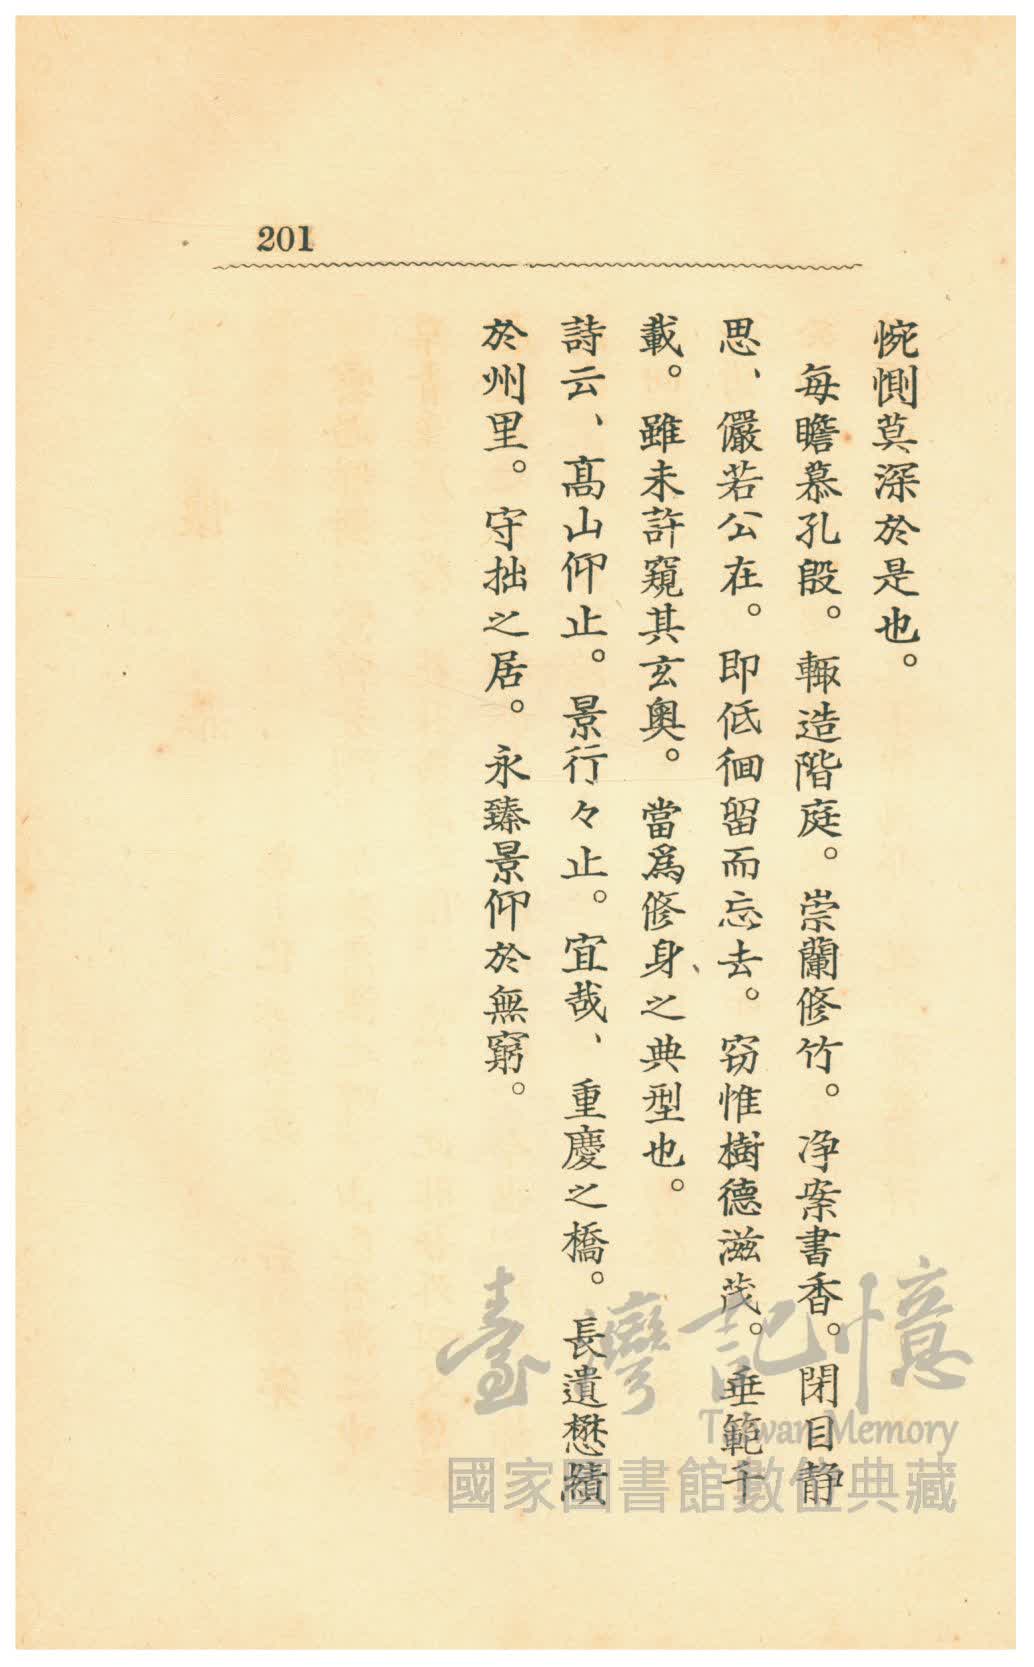 201
惋惻莫深於是也。
每瞻慕孔殷。輙造階庭。崇蘭修竹。净案書香。閉目静
思、儼若公在。即低徊留而忘去。窃惟樹德滋茂。垂範千
載。雖未許窺其玄奧。當爲修身之典型也。
詩云、高山仰止。景行々止。宜哉、重慶之橋。長遺懋績
於州里。守拙之居。永臻景仰於無窮。
臺灣記憶
Taiwan Memory
國家圖書館數位典藏